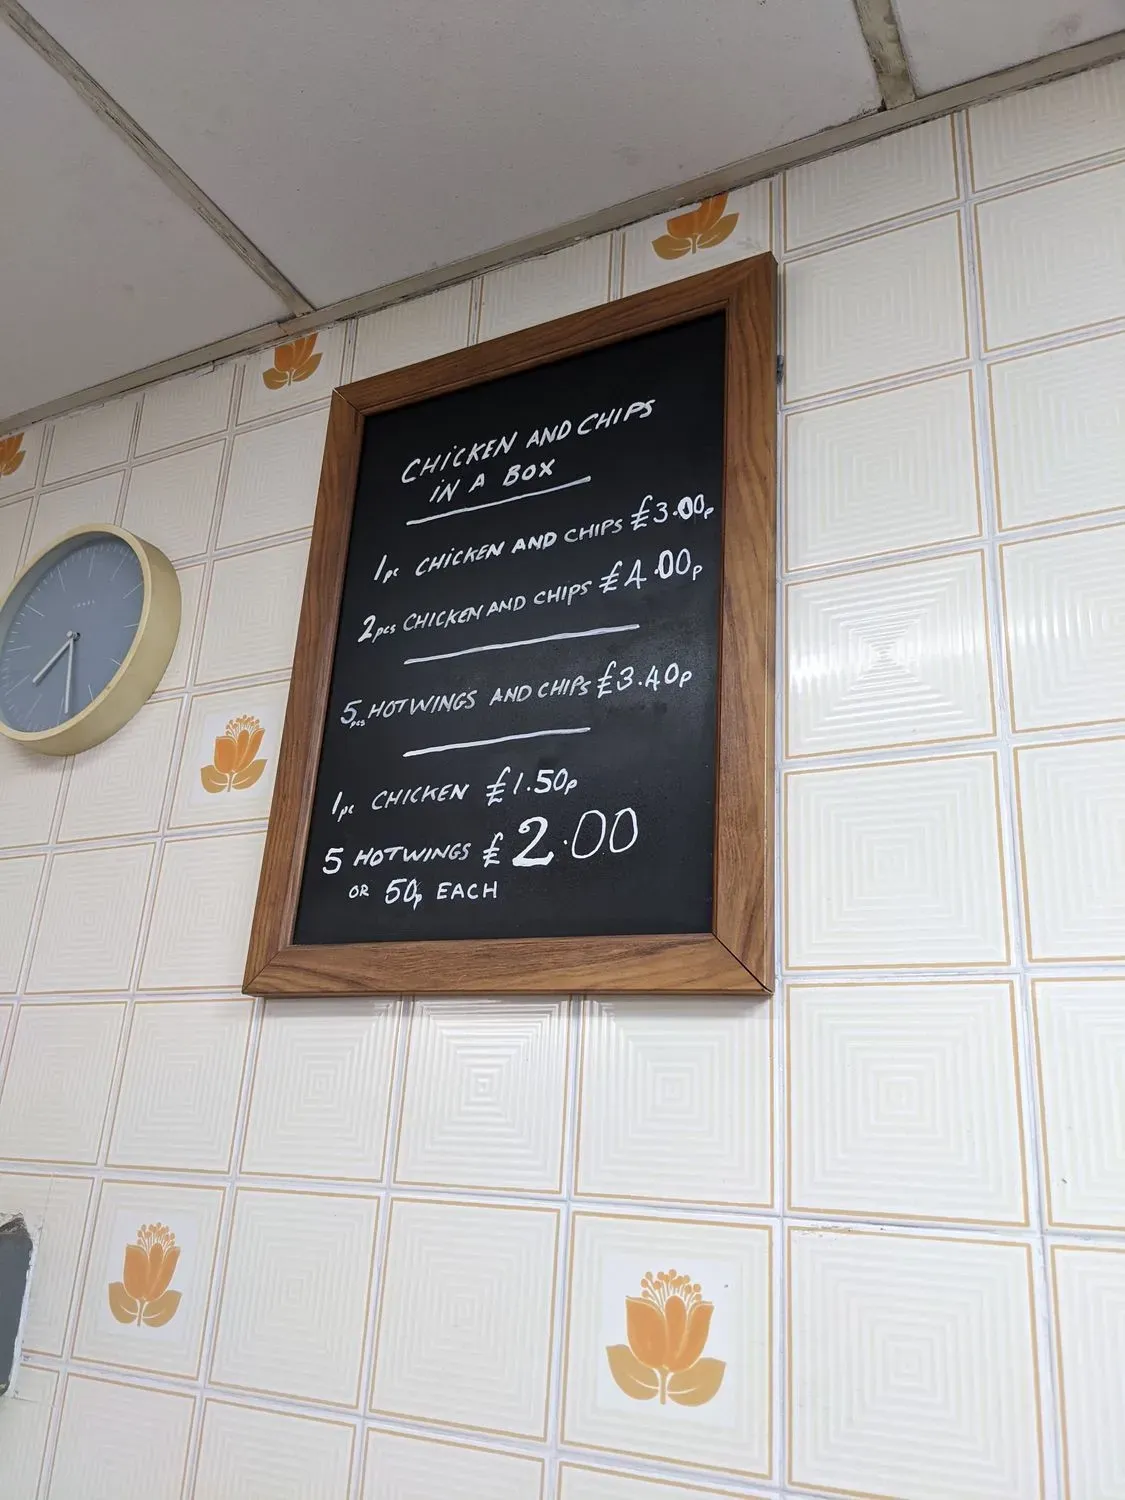 CHiCKEN AND CHIPS
iN A BOX
1pc CHiCKEN AND CHIPS £3.00p
2pcs CHICKEN AND CHIPS £4.00p
5pcs HOTWINGS AND CHIPS £3.40p
1pc CHICKEN £1.50p
5 HOTWINGS £2.00
OR 50p EACH